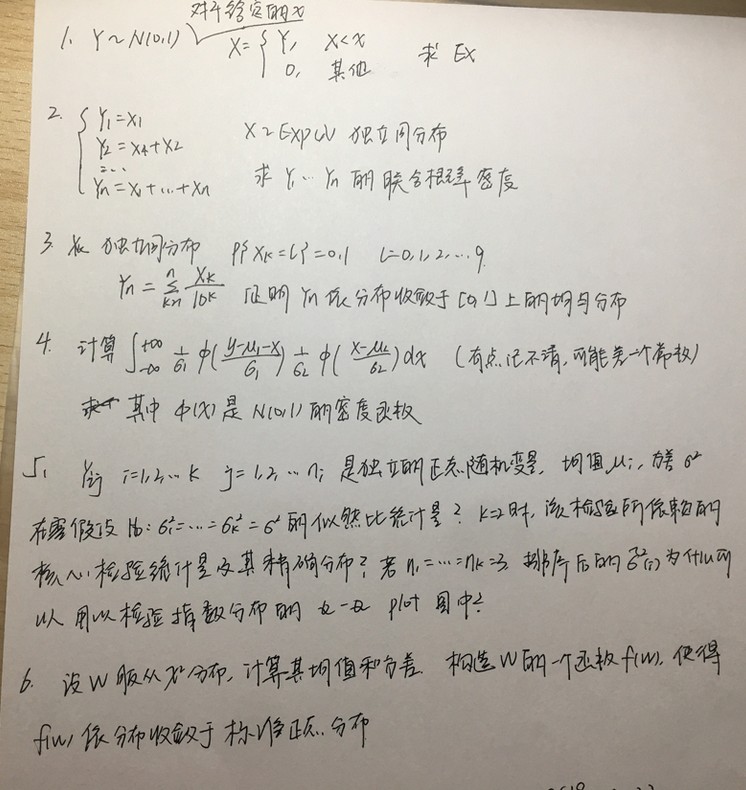 对于给定的x
1. Y~N(0,1) X={Y, X<x 求 EX
0, 其他
2. {Y₁=X₁
Y₂=X₁+X₂ X~Exp(λ) 独立同分布
...
Yn=X₁+...+Xn 求 Y₁...Yn 的联合概率密度
3. Xk 独立同分布 P{Xk=i}=0.1 i=0,1,2,...9
Yn=Σ(k=1,n) Xk/10^k 证明 Yn 依分布收敛于[0,1]上的均匀分布
4. 计算 ∫(-∞,+∞) 1/σ₁ φ((y-μ₁-x)/σ₁) 1/σ₂ φ((x-μ₂)/σ₂)dx (有点记不清,可能差一个常数)
其中 φ(x)是N(0,1)的密度函数
5. Yij i=1,2...k j=1,2,...ni 是独立的正态随机变量, 均值μi, 方差σ²
在零假设 H₀: σ₁²=...=σk²=σ² 的似然比统计量? k=2时, 该检验所依赖的
核心检验统计量及其精确分布? 若n₁=...=nk=3, 排序后的σ̂²(i)为什么可
以用以检验指数分布的 Q-Q plot 图中?
6. 设W服从χ²分布, 计算其均值和方差. 构造W的一个函数f(w), 使得
f(w)依分布收敛于标准正态分布